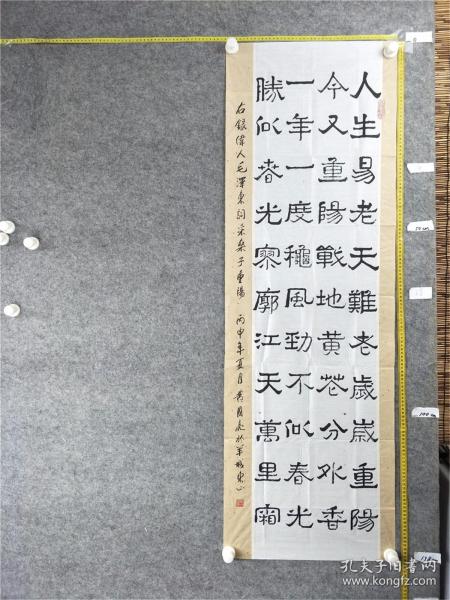 人生易老天難老歲歲重陽
今又重陽戰地黄花分外香
一年一度穐風勁不似春光
勝似春光寥廓江天萬里霜
右錄偉人毛澤東詞采桑子重陽 丙申年夏月黄國於羊城東山
50cm
100cm
孔夫子旧书网
www.kongfz.com